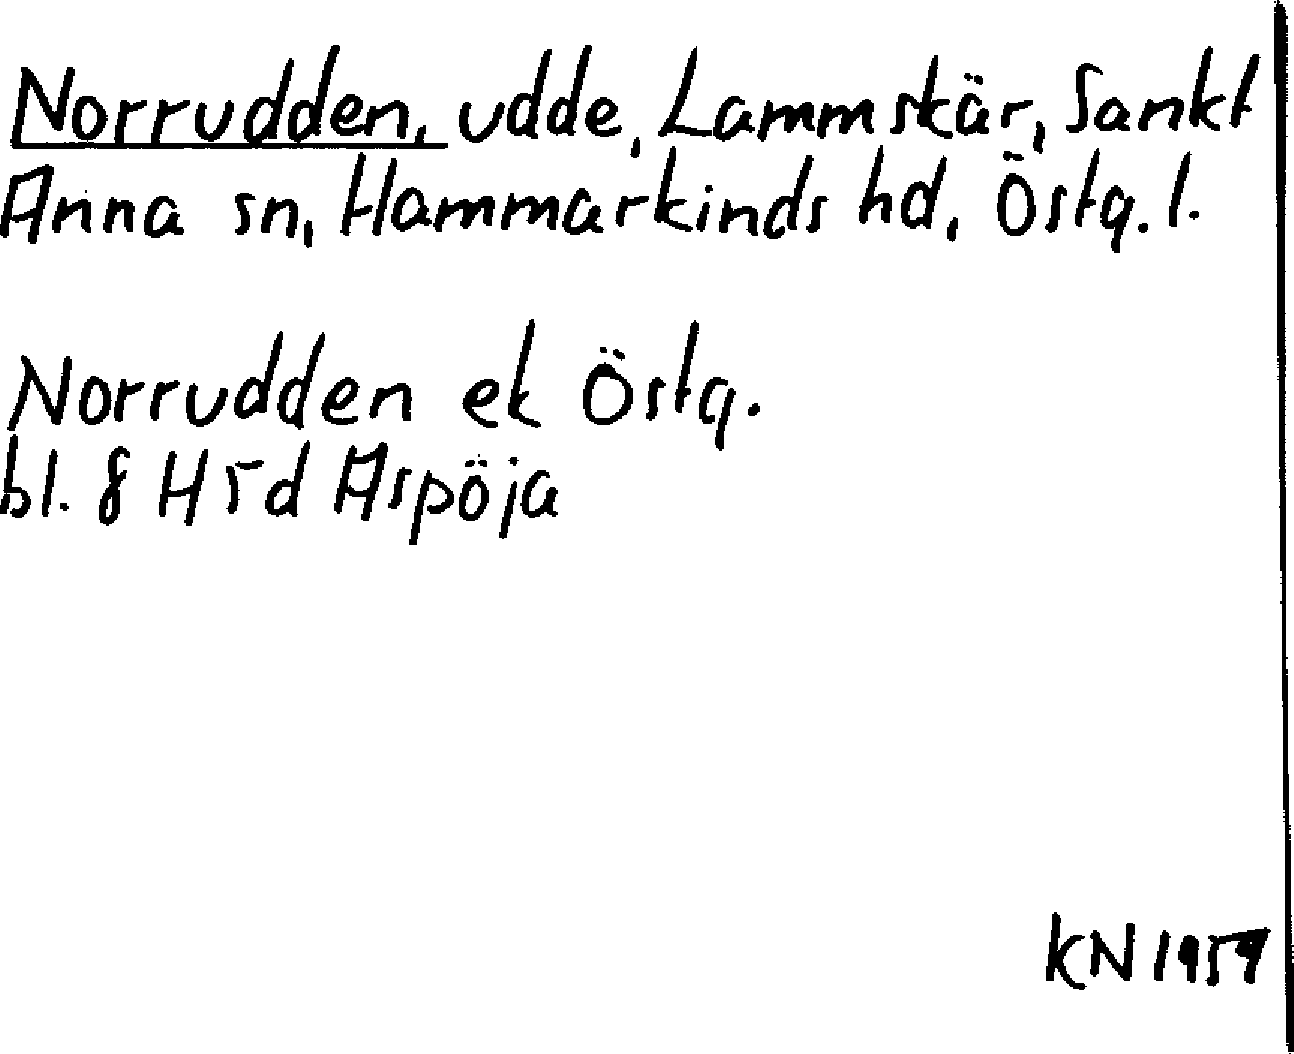 Norrudden, udde, Lammskär, Sankt
Anna sn, Hammarkinds hd, Östg. l.
Norrudden ek Östg.
bl. 8 H 5 d Aspöja
KN 1959